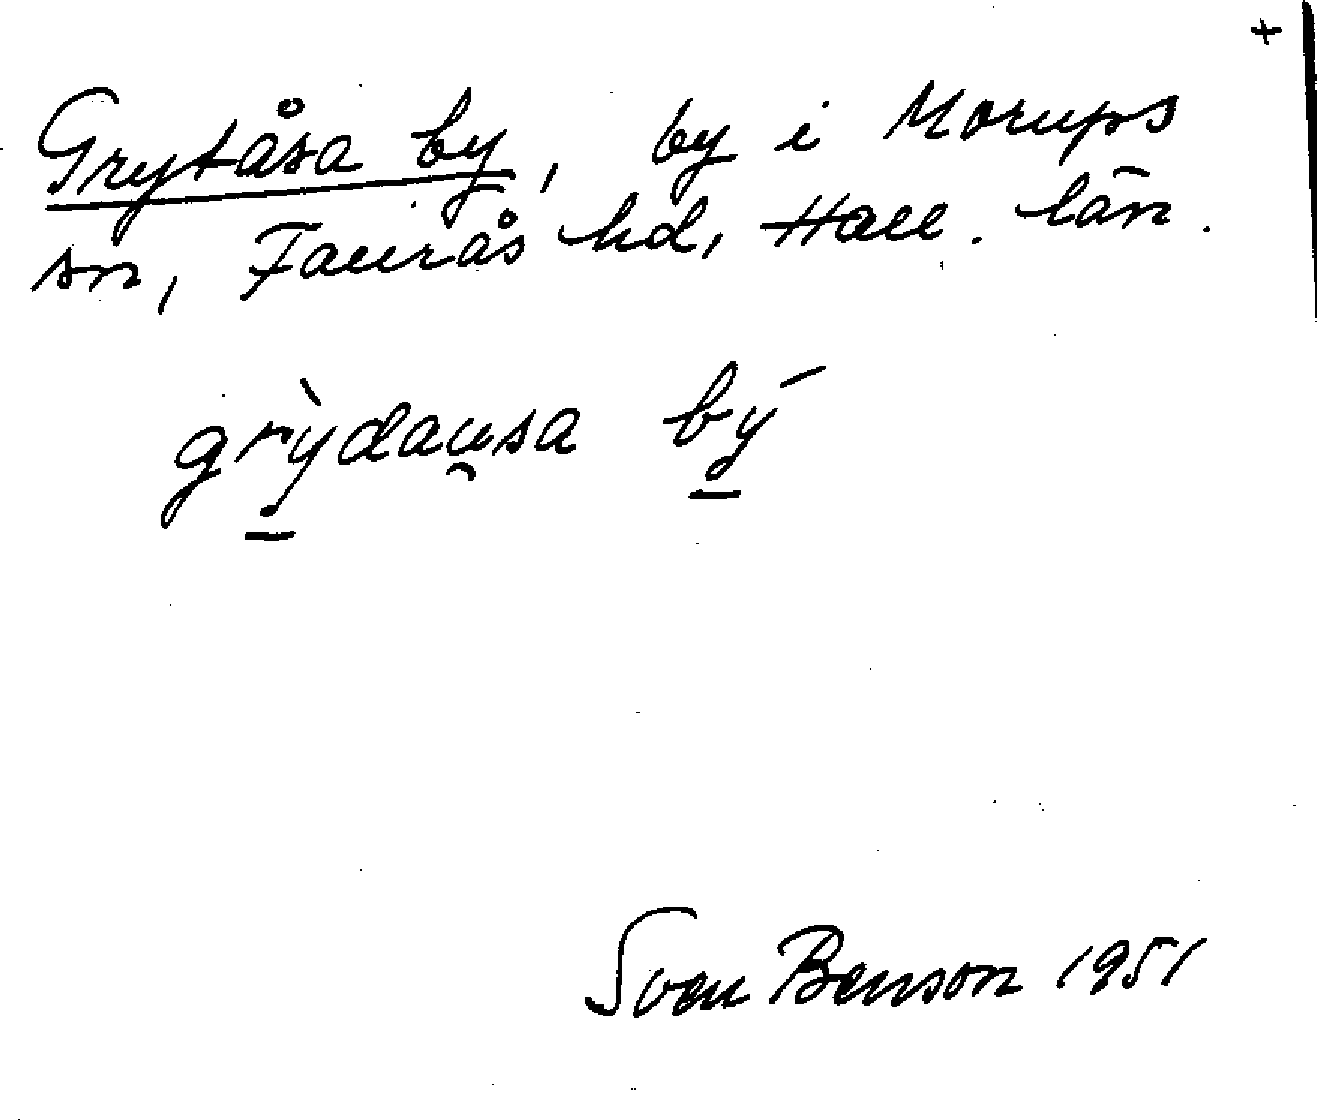 +
Grytåsa by, by i Morups
sn, Faurås hd, Hall. län.
grỳdau̯sa bý
Sven Benson 1951